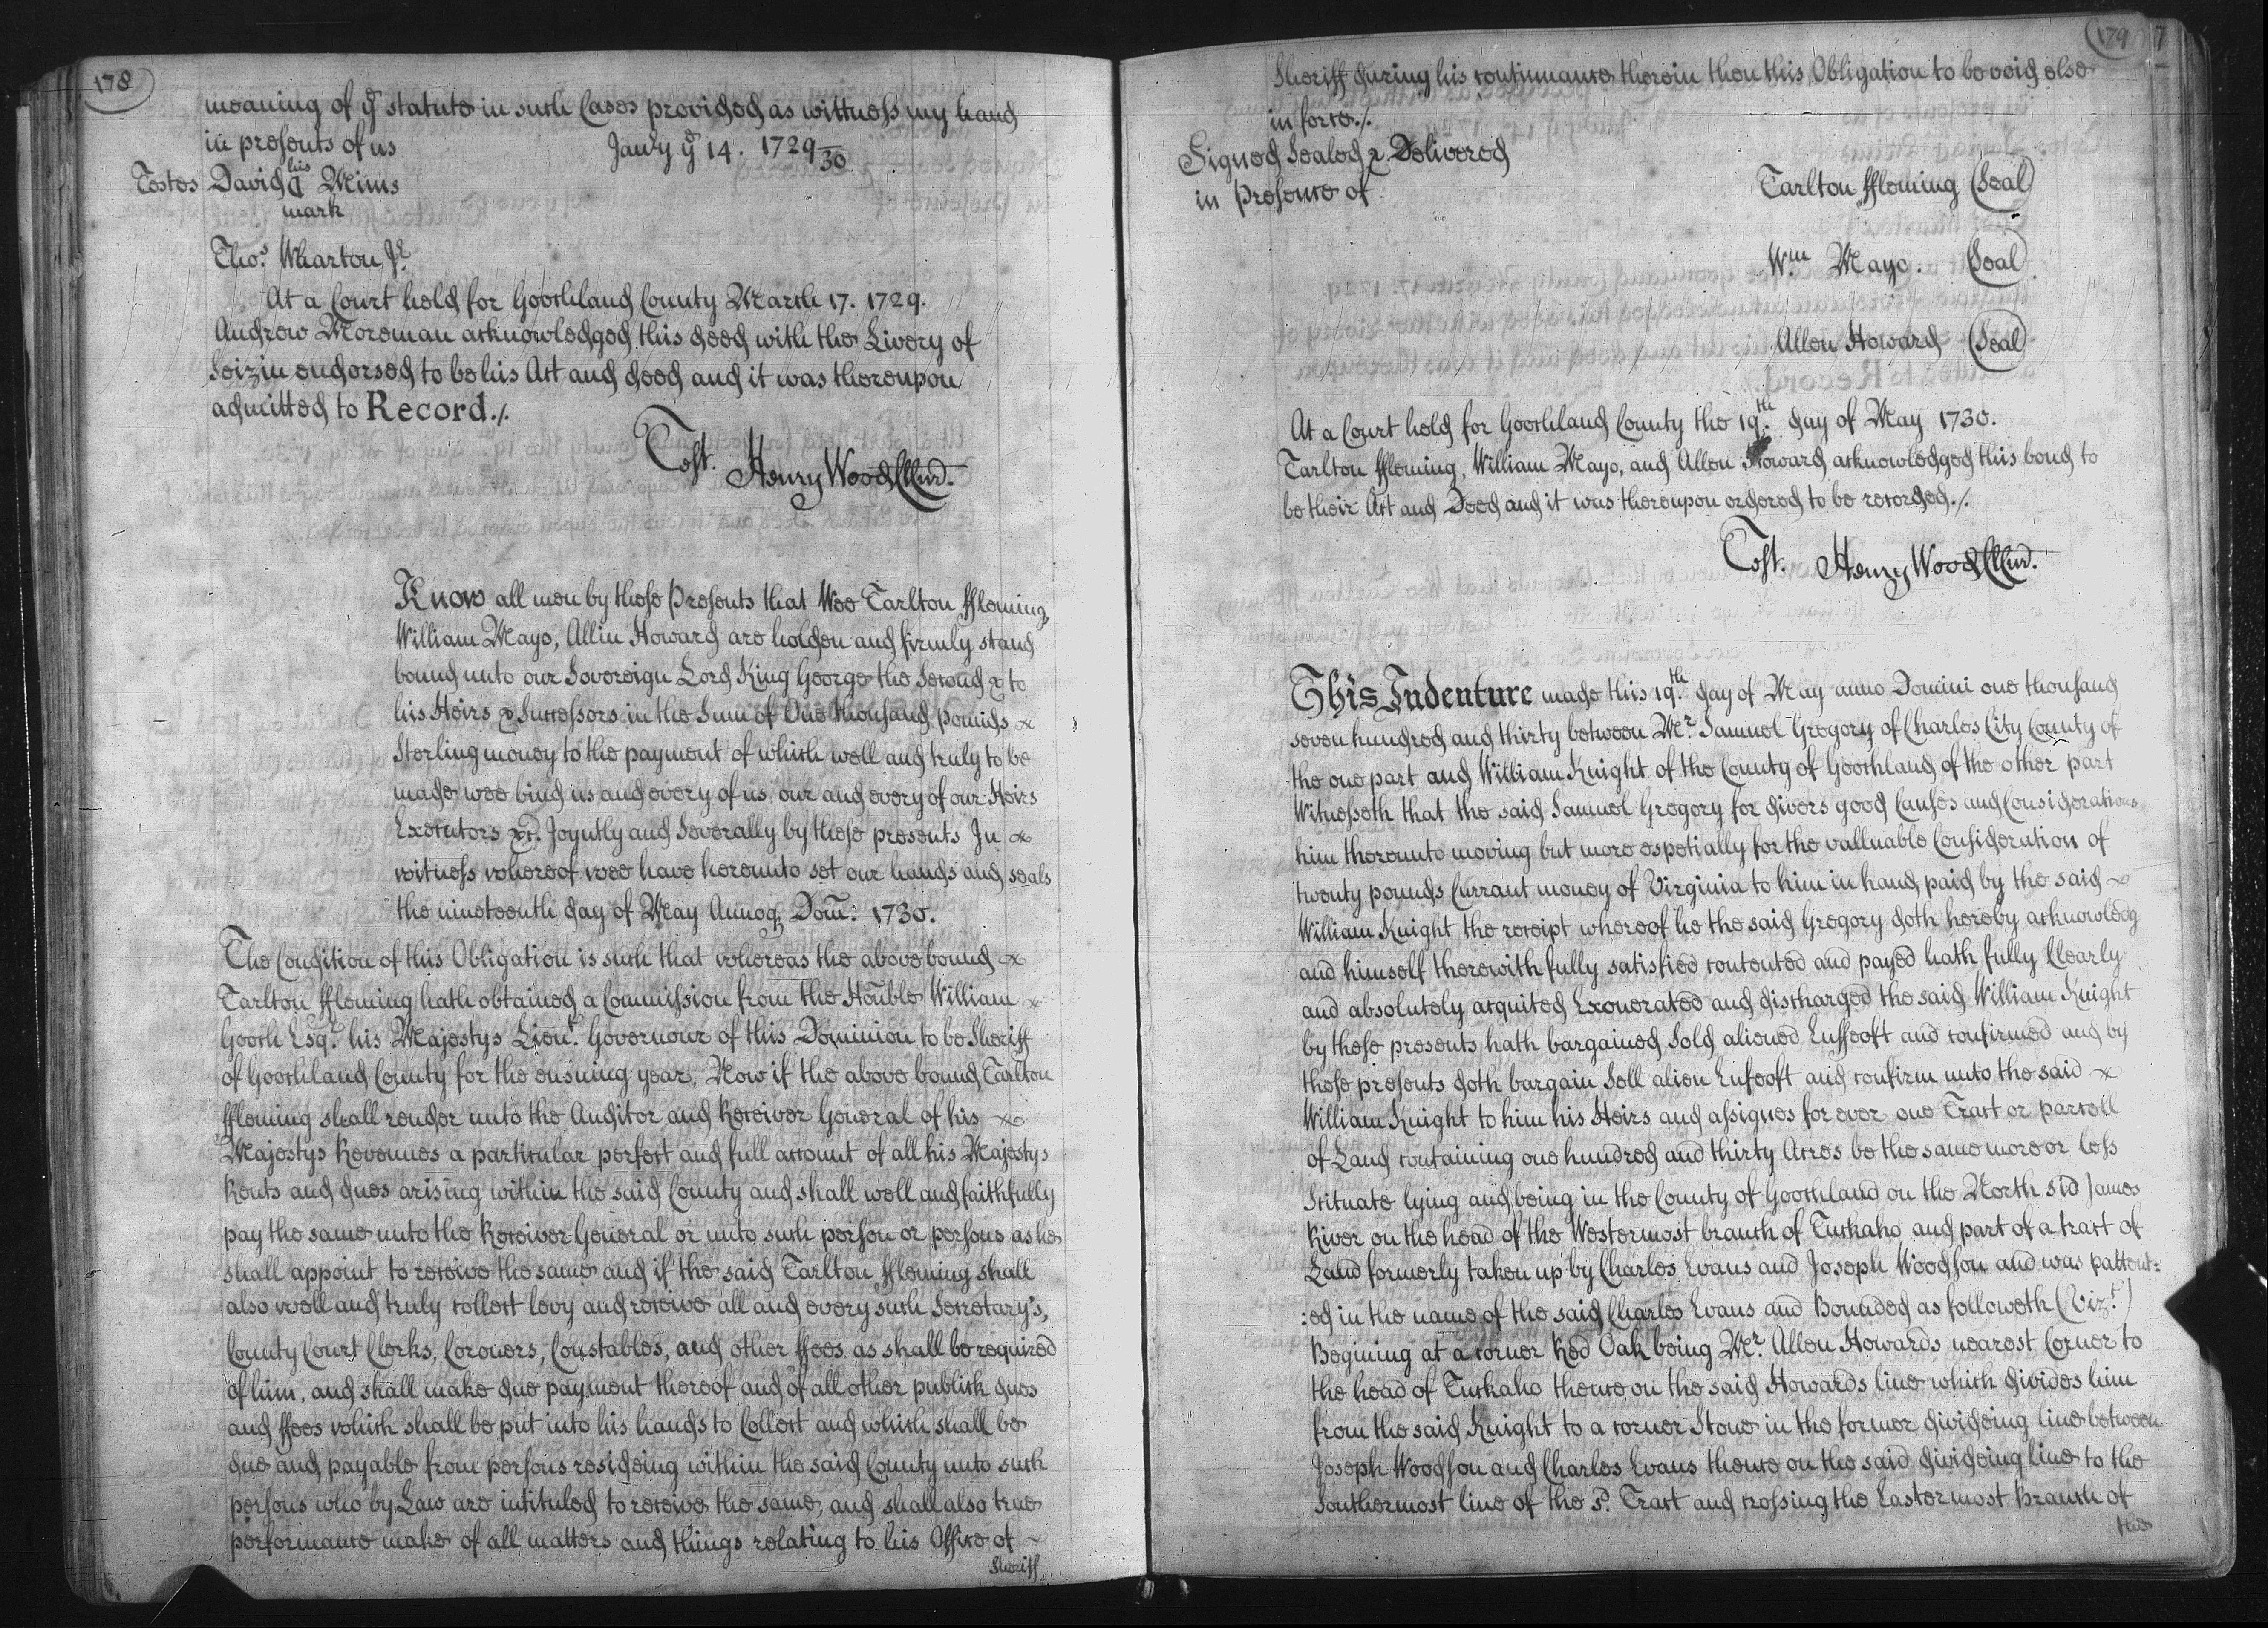 178
meaning of ye statute in such Cases provided as wittness my hand
in presents of us Janry ye 14. 1729/30
Testes David his Mims
mark
Thos. Wharton Jr.
At a Court held for Goochland County March 17. 1729.
Andrew Moreman acknowledged this deed with the Livery of
Seizin endorsed to be his Act and deed and it was thereupon
admitted to Record./.
Test. Henry Wood ClCur.
Know all men by these Presents that Wee Tarlton ffleming,
William Mayo, Allin Howard are holden and firmly stand
bound unto our Sovereign Lord King George the Second & to
his Heirs & Successors in the Sum of One thousand pounds
Sterling money to the payment of which well and truly to be
made wee bind us and every of us, our and every of our Heirs
Executors &c. Joyntly and Severally by these presents In
witness whereof wee have hereunto set our hands and seals
the nineteenth day of May Annoq Dom: 1730.
The Condition of this Obligation is such that whereas the above bound
Tarlton ffleming hath obtained a Commission from the Honble William
Gooch Esqr. his Majestys Lieut. Governour of this Dominion to be Sheriff
of Goochland County for the ensuing year, Now if the above bound Tarlton
ffleming shall render unto the Auditor and Receiver General of his
Majestys Revenues a particular perfect and full account of all his Majestys
Rents and dues arising within the said County and shall well and faithfully
pay the same unto the Receiver General or unto such person or persons as he
shall appoint to receive the same and if the said Tarlton ffleming shall
also well and truly collect levy and receive all and every such Secretary's,
County Court Clerks, Coroners, Constables, and other ffees as shall be required
of him, and shall make due payment thereof and of all other publick dues
and ffees which shall be put into his hands to Collect and which shall be
due and payable from persons resideing within the said County unto such
persons who by Law are intituled to receive the same, and shall also true
performance make of all matters and things relating to his Office of
Sheriff
179
Sheriff during his continuance therein then this Obligation to be void else
in force./.
Signed Sealed & Delivered
in Presence of
Tarlton ffleming (Seal)
Wm Mayo. (Seal)
Allen Howard (Seal)
At a Court held for Goochland County the 19th. day of May 1730.
Tarlton ffleming, William Mayo, and Allen Howard acknowledged this bond to
be their Act and Deed and it was thereupon ordered to be recorded./.
Test. Henry Wood ClCur.
This Indenture made this 19th. day of May anno Domini one thousand
seven hundred and thirty between Mr. Samuel Gregory of Charles City County of
the one part and William Knight of the County of Goochland of the other part
Witnesseth that the said Samuel Gregory for divers good Causes and Considerations
him thereunto moving but more espetially for the valluable Consideration of
twenty pounds Currant money of Virginia to him in hand paid by the said
William Knight the receipt whereof he the said Gregory doth hereby acknowledg
and himself therewith fully satisfied contented and payed hath fully Clearly
and absolutely acquited Exonerated and discharged the said William Knight
by these presents hath bargained Sold aliened Enffeoft and confirmed and by
these presents doth bargain Sell alien Enfeoft and confirm unto the said
William Knight to him his Heirs and assignes for ever one Tract or parcell
of Land containing one hundred and thirty Acres be the same more or less
Scituate lying and being in the County of Goochland on the North sid James
River on the head of the Westermost branch of Tuckaho and part of a tract of
Land formerly taken up by Charles Evans and Joseph Woodson and was pattent=
:ed in the name of the said Charles Evans and Bounded as followeth (Vizt.)
Begining at a corner Red Oak being Mr. Allen Howards nearest Corner to
the head of Tuckaho thence on the said Howards line which divides him
from the said Knight to a corner Stone in the former divideing line between
Joseph Woodson and Charles Evans thence on the said divideing line to the
Southermost line of the sd. Tract and crossing the Eastermost Branch of
the